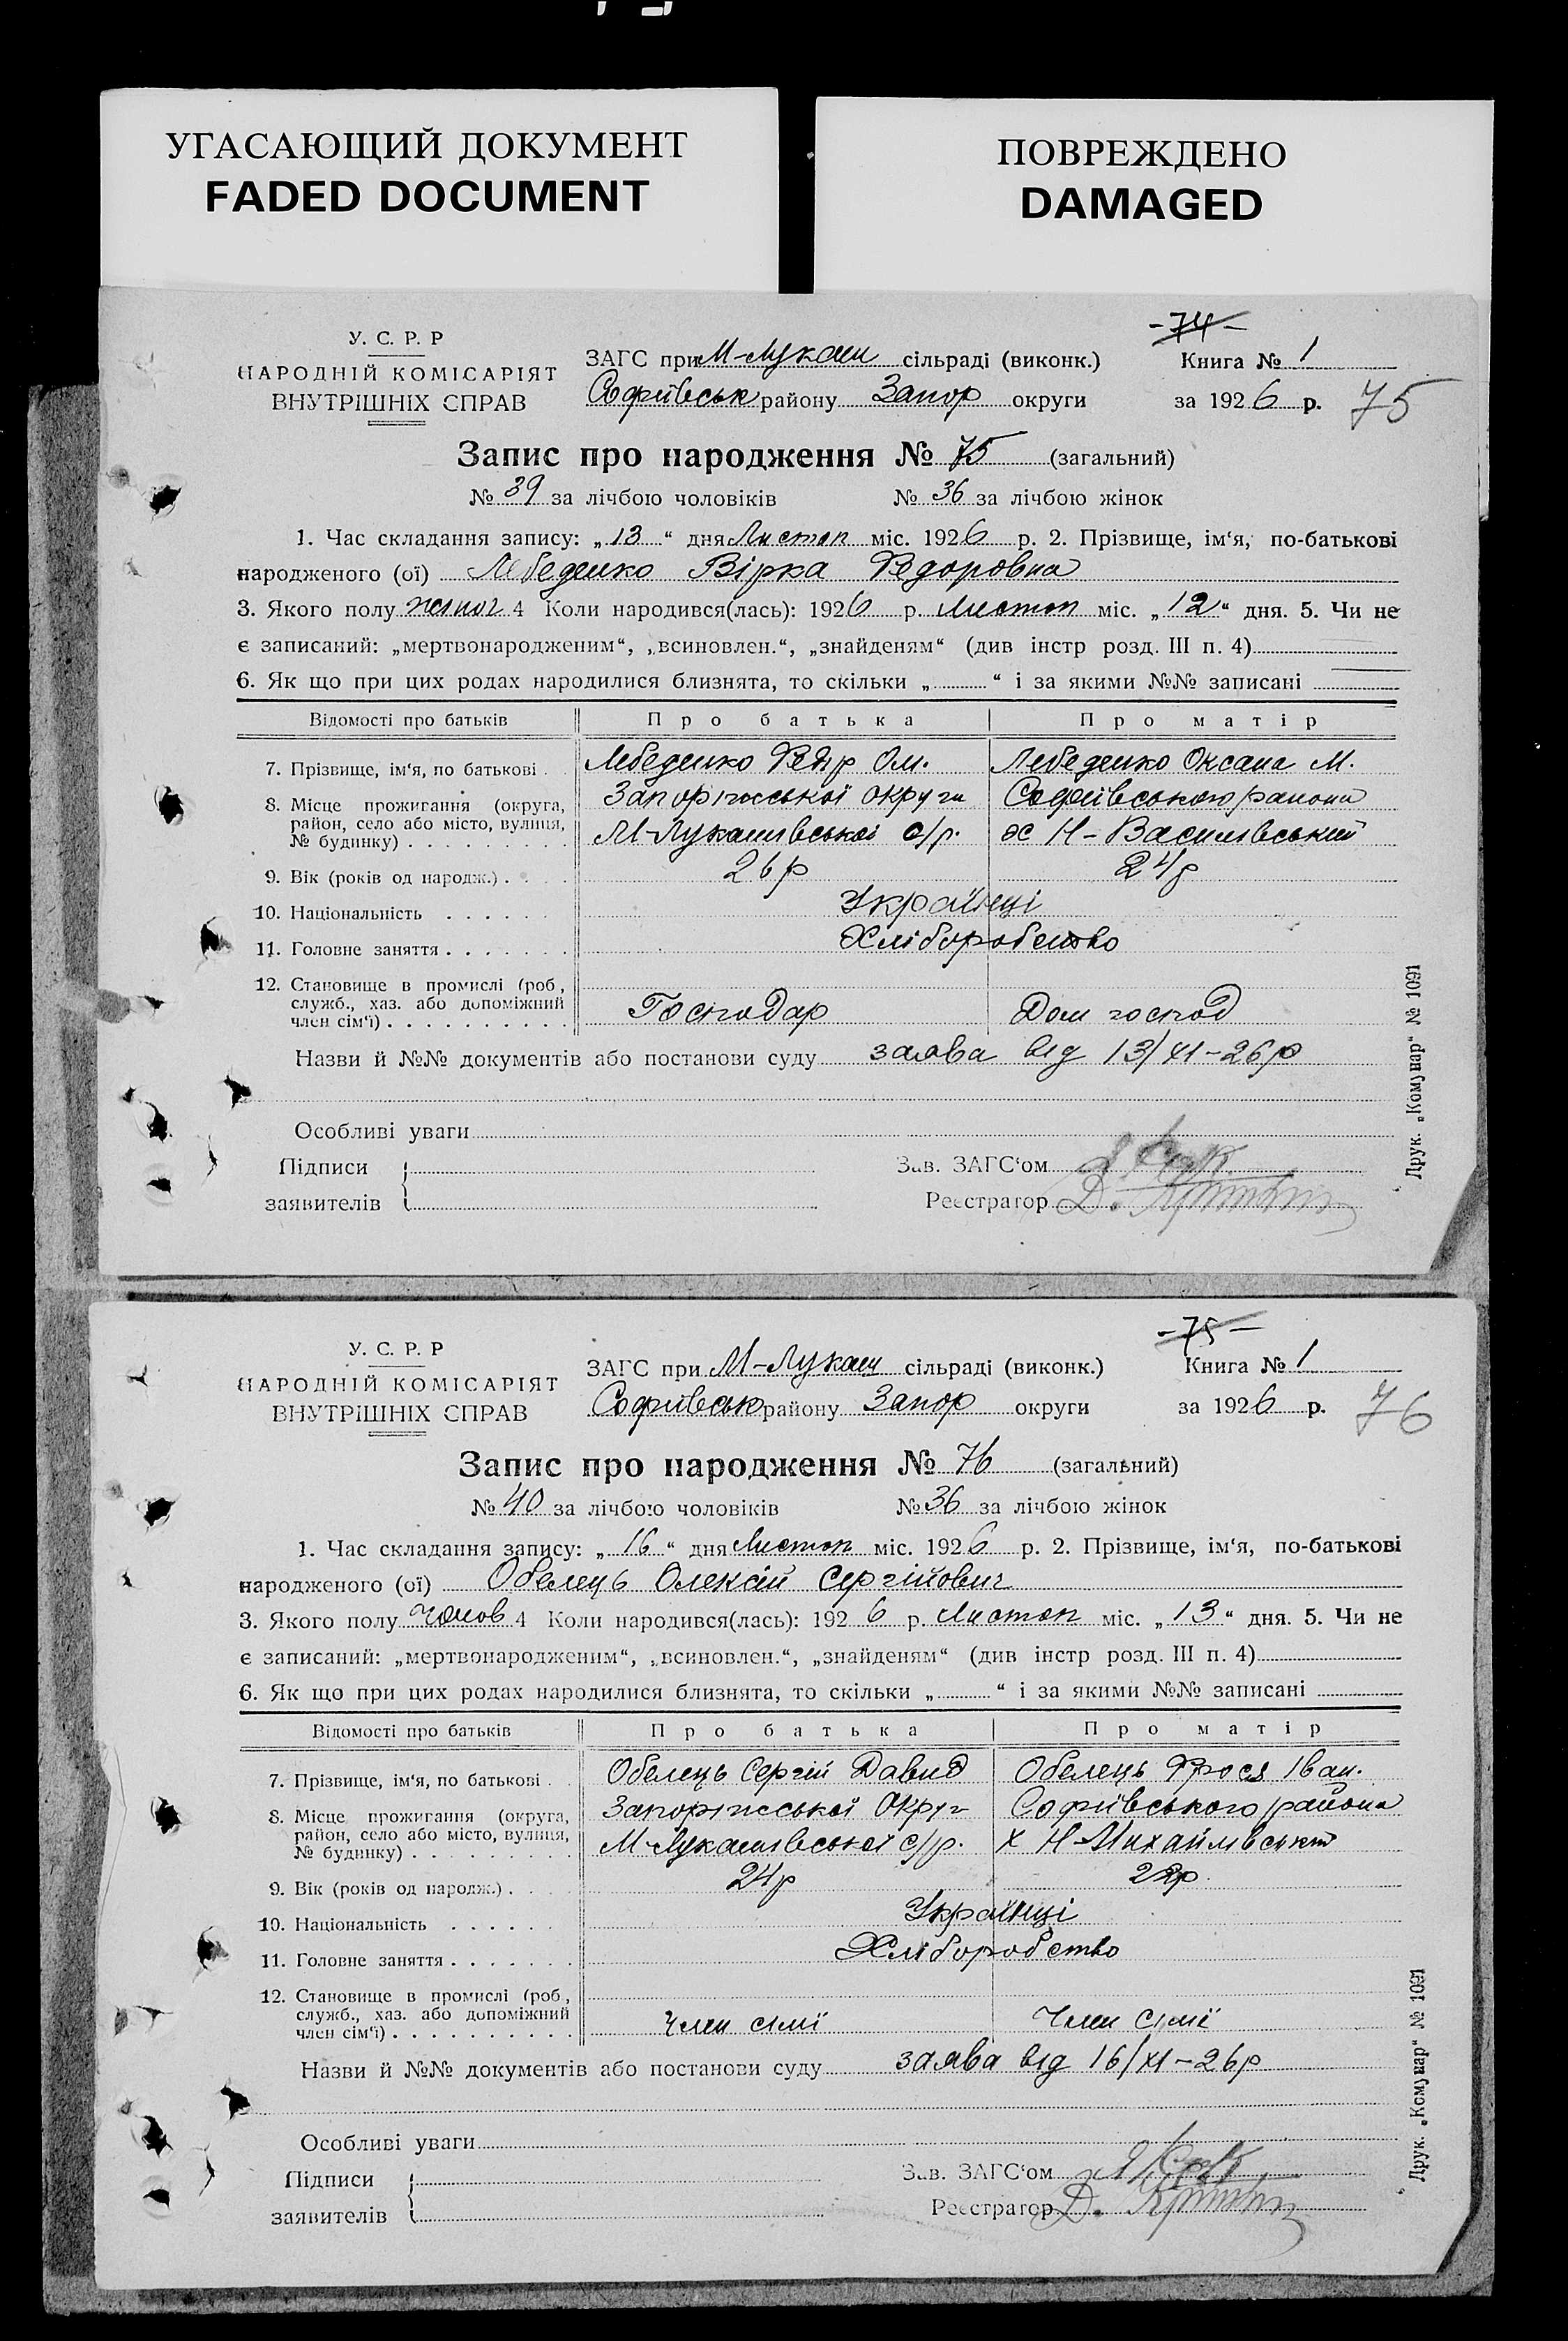 УГАСАЮЩИЙ ДОКУМЕНТ
FADED DOCUMENT
ПОВРЕЖДЕНО
DAMAGED
-74-
У. С. Р. Р
НАРОДНІЙ КОМІСАРІЯТ
ВНУТРІШНІХ СПРАВ
ЗАГС при М-Лукаш сільраді (виконк.)
Книга № 1
Софиївськ району Запор округи
за 1926 р.
75
Запис про народження № 75 (загальний)
№ 39 за лічбою чоловіків № 36 за лічбою жінок
1. Час складання запису: „13“ дня Листоп міс. 1926 р. 2. Прізвище, ім‘я, по-батькові
народженого (ої) Лебеденко Вірка Федоровна
3. Якого полу жіноч 4 Коли народився(лась): 1926 р. Листоп міс. „12“ дня. 5. Чи не
є записаний: „мертвонародженим“, „всиновлен.“, „знайденям“ (див інстр розд. III п. 4)
6. Як що при цих родах народилися близнята, то скільки „ “ і за якими №№ записані
Відомості про батьків Про батька Про матір
7. Прізвище, ім‘я, по батькові . Лебеденко Федір Ом. Лебеденко Оксана М.
8. Місце прожигання (округа, Запоріжської округи Софиївського района
район, село або місто, вулиця,
№ будинку) . . . . . . . . . М-Лукашівської с/р. х Н-Василівський
9. Вік (років од народж.) . . . . 26р 24р
10. Національність . . . . . . Українці
11. Головне заняття . . . . . . . Хліборобство
12. Становище в промислі (роб.,
служб., хаз. або допоміжний
член сім‘ї) . . . . . . . . . . Господар Дом господ
Назви й №№ документів або постанови суду заява від 13/XI-26р
Особливі уваги
Підписи
заявителів
Зав. ЗАГС‘ом
Реєстратор Д.
Друк. „Комунар“ № 1091
-75-
У. С. Р. Р
НАРОДНІЙ КОМІСАРІЯТ
ВНУТРІШНІХ СПРАВ
ЗАГС при М-Лукаш сільраді (виконк.)
Книга № 1
Софиївськ району Запор округи
за 1926 р.
76
Запис про народження № 76 (загальний)
№ 40 за лічбою чоловіків № 36 за лічбою жінок
1. Час складання запису: „16“ дня Листоп міс. 1926 р. 2. Прізвище, ім‘я, по-батькові
народженого (ої) Обелець Олексій Сергійович
3. Якого полу Чолов 4 Коли народився(лась): 1926 р. Листоп міс. „13“ дня. 5. Чи не
є записаний: „мертвонародженим“, „всиновлен.“, „знайденям“ (див інстр розд. III п. 4)
6. Як що при цих родах народилися близнята, то скільки „ “ і за якими №№ записані
Відомості про батьків Про батька Про матір
7. Прізвище, ім‘я, по батькові . Обелець Сергій Давид Обелець Фрося Іван.
8. Місце прожигання (округа, Запоріжської Округ Софиївського района
район, село або місто, вулиця,
№ будинку) . . . . . . . . . М-Лукашівської с/р. х Н-Михайлівськ
9. Вік (років од народж.) . . . . 24р 22р.
10. Національність . . . . . . Українці
11. Головне заняття . . . . . . . Хліборобство
12. Становище в промислі (роб.,
служб., хаз. або допоміжний
член сім‘ї) . . . . . . . . . . Член сімї Член сімї
Назви й №№ документів або постанови суду заява від 16/XI-26р
Особливі уваги
Підписи
заявителів
Зав. ЗАГС‘ом
Реєстратор Д.
Друк. „Комунар“ № 1091